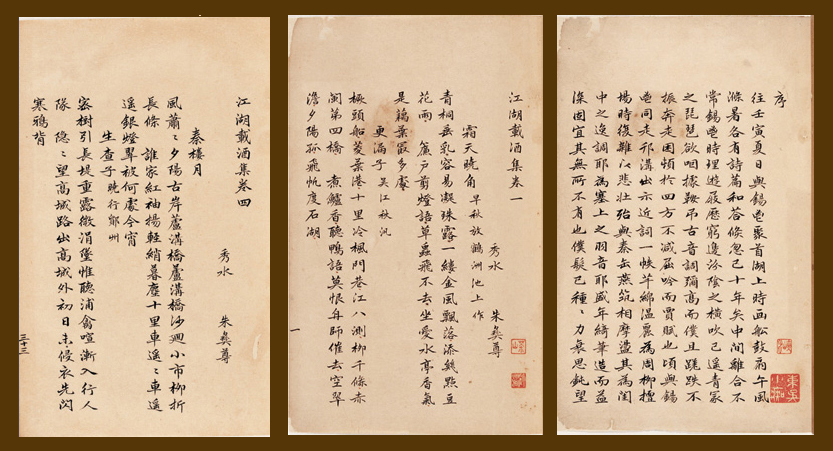 序
往壬寅夏日與錫鬯聚首湖上時画船鼓扇午風
滌暑各有詩篇和荅倏忽已十年矣中間離合不
常錫鬯時理遊屐歷窮邊汾陰之橫吹已遥青冢
之琵琶欲咽據鞍弔古音調彌高而僕且蹉跌不
振奔走困頓於四方不減屈吟而賈賦也頃與錫
鬯同走邗溝出示近詞一帙芊綿温麗為周柳擅
場時復雜以悲壯殆與秦缶燕筑相摩盪其為閨
中之逸調耶為塞上之羽音耶盛年綺華造而益
深固宜其無所不有也僕髮已種〻力衰思鈍望
江湖載酒集卷一
秀水 朱彝尊
霜天曉角 早秋放鶴洲池上作
青桐垂乳容易凝珠露一縷金風飄落添幾點豆
花雨 簾戸剪燈語草蟲飛不去坐愛水亭香氣
是藕葉最多處
更漏子 吳江秋汎
橛頭船菱葉港十里冷楓門巷江八測柳千條赤
闌第四橋 煮鱸香聽鴨語莫恨舟師催去空翠
澹夕陽孤飛帆度石湖
一
江湖載酒集卷四
秀水 朱彝尊
秦樓月
風蕭〻夕陽古岸蘆溝橋蘆溝橋沙迴小市柳折
長條 誰家紅袖揚輕綃暮塵十里車遥〻車遥
遥銀燈翠被何處今宵
生查子 曉行鄚州
密樹引長堤重露微涓墜惟聽浦禽喧漸入行人
隊 隱〻望高城路出高城外初日未侵衣先閃
寒鴉背
三十三